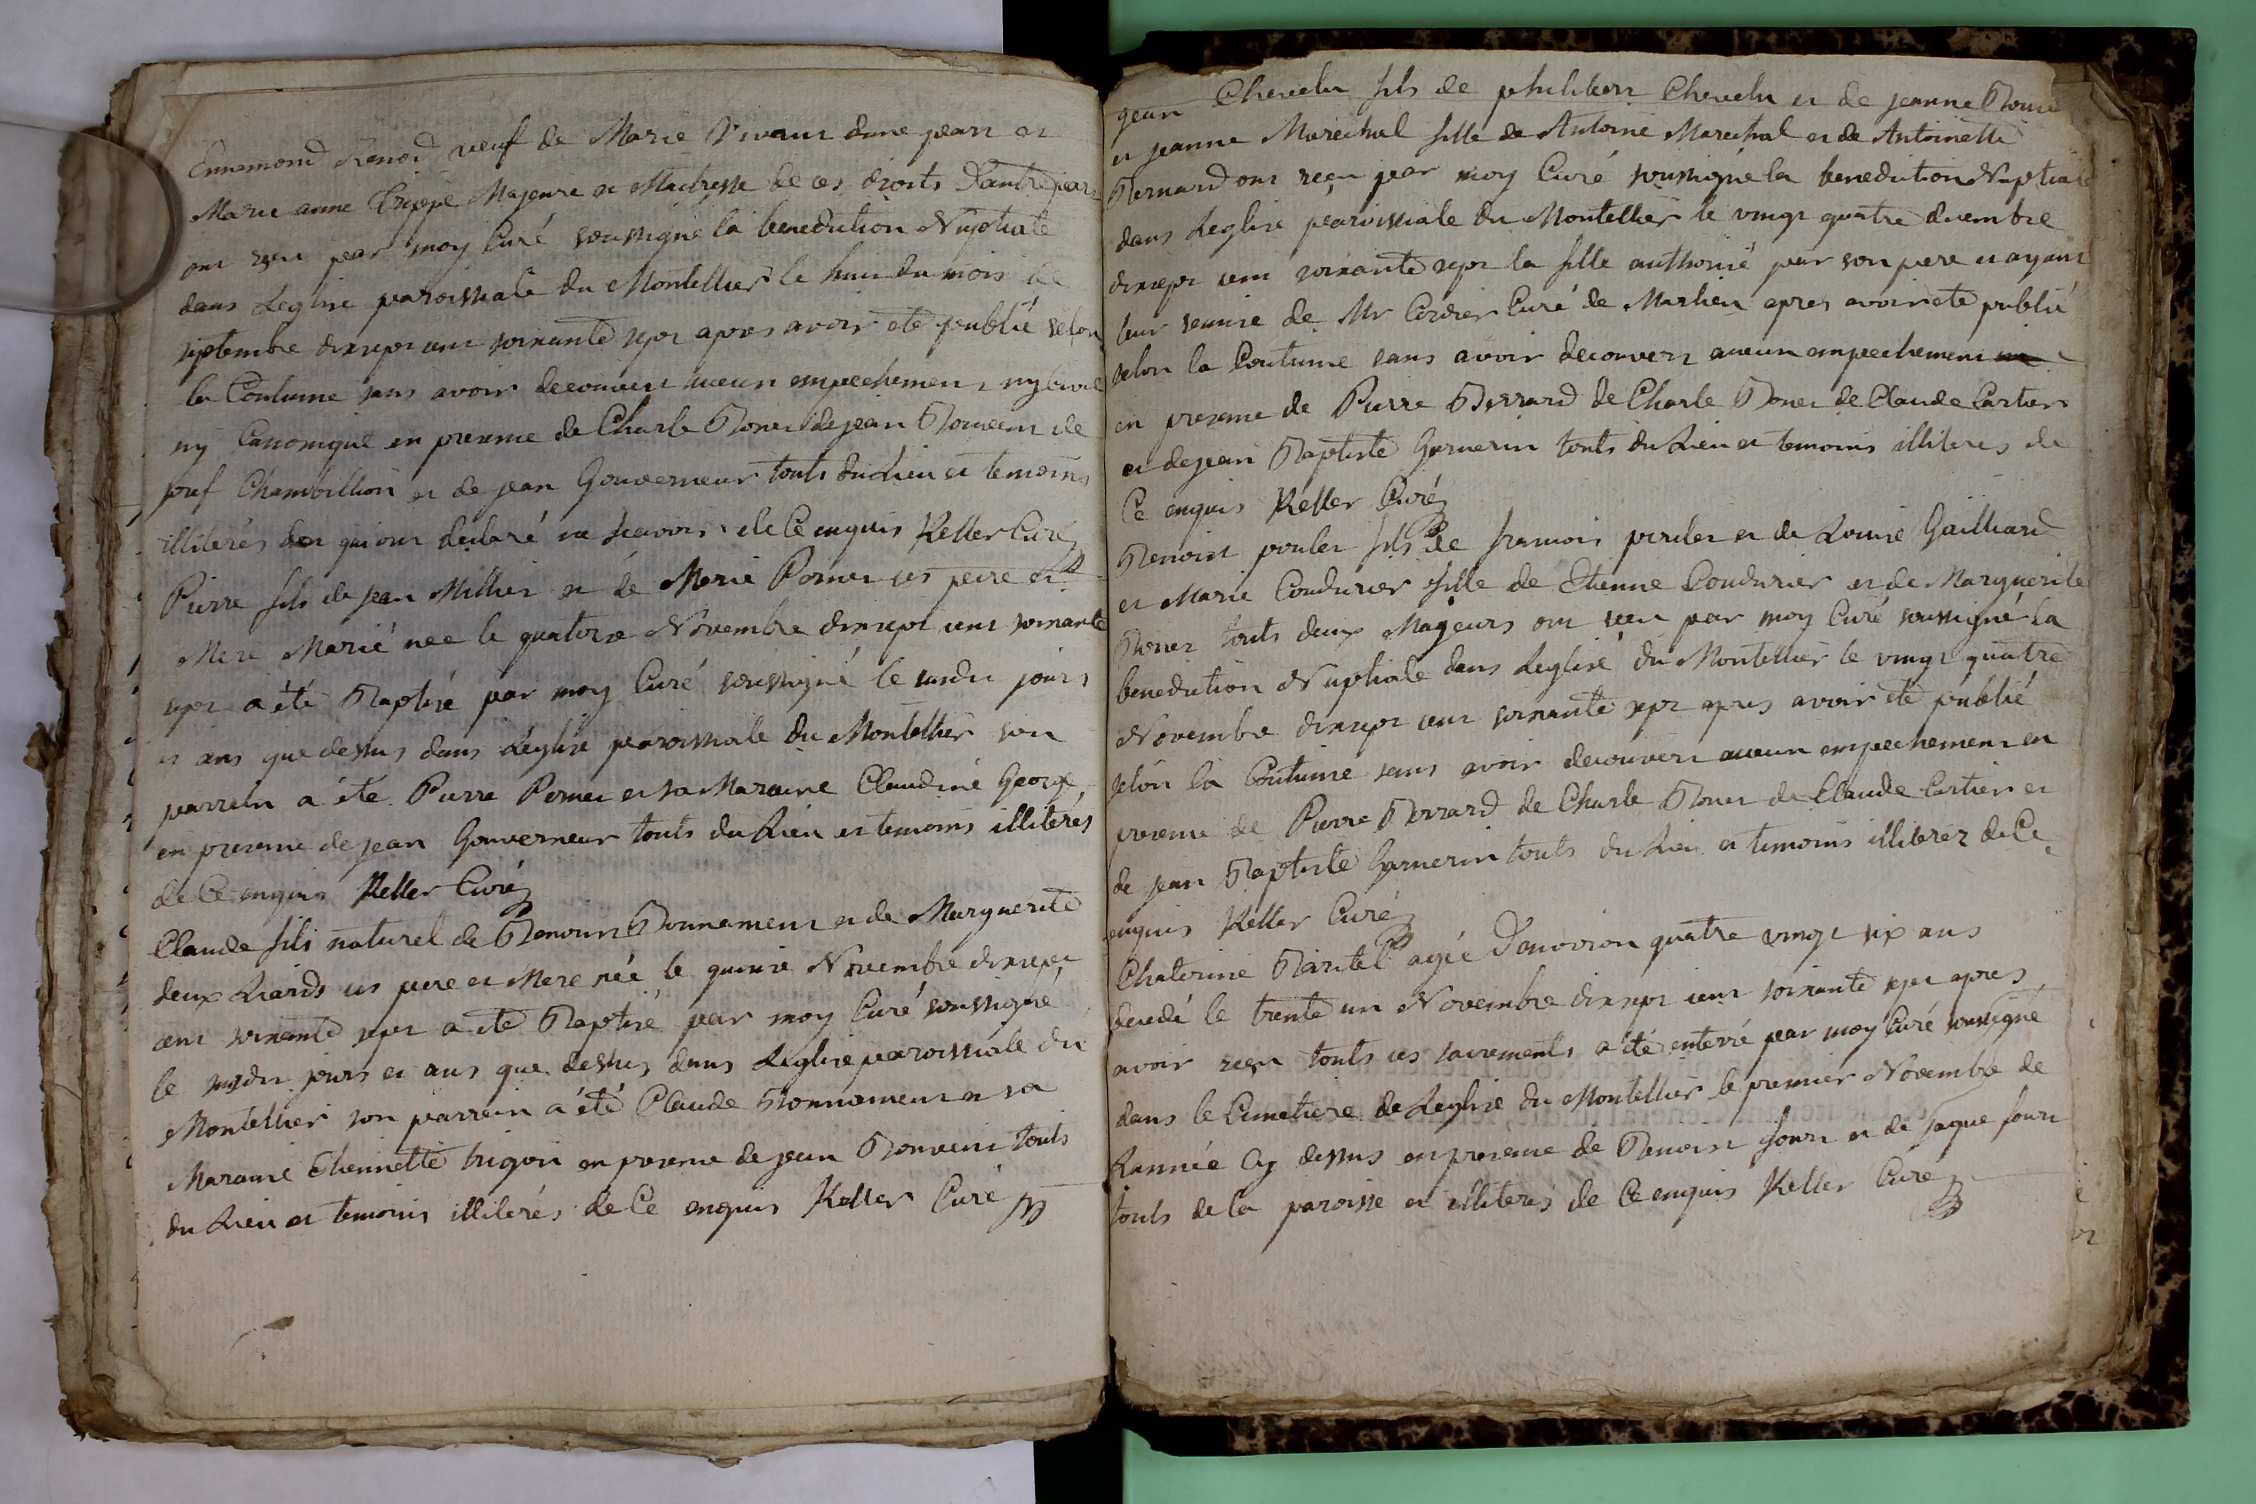 Ennemond Renord veuf de Marie Vivant dune part et
Marie anne Trippé Majeure et Maitresse de ces droits D'autre part
ont reçu par moy Curé soussigné la benediction Nuptiale
dans Leglise paroissiale du Montellier le huit du mois de
septembre dixsept cent soixante sept apres avoir eté publié selon
la Coutume sans avoir decouvert aucun empechement ny civil
ny Canonique en presence de Charle Bonet de jean Bouvent de
josef Chambillion et de jean Gouverneur touts du Lieu et temoins
illiterés qui ont declaré ne scavoir de Ce enquis Keller Curé
Pierre fils de jean Millier et de Marie Pomier ces pere et
Mere Marié née le quatorze Novembre dixsept cent soixante
sept a été Baptisé par moy Curé soussigné le susdit jours
et ans que dessus dans L'eglise paroissiale du Montellier son
parrain a été Pierre Pomier et sa Maraine Claudine George
en presence de jean Gouverneur touts du Lieu et temoins illiterés
de Ce enquis Keller Curé
Claude fils naturel de Benoist Bonnament et de Marguerite
deux Liards ces pere et Mere née le quinze Novembre dixsept
cent soixante sept a eté Baptisé par moy Curé soussigné
le susdit jours et ans que dessus dans Leglise paroissiale du
Montellier son parrain a été Claude Bonnament et sa
Maraine Thiennette trigon en presence de jean Bouvent touts
du Lieu et temoins illiterés de Ce enquis Keller Curé
jean Chevelu fils de philibert Chevelu et de jeanne
et jeanne Marechal fille de Antoine Marechal et de Antoinette
Bernard ont reçu par moy Curé soussigné la benediction Nuptiale
dans Leglise paroissiale du Montellier le vingt quatre
dixsept cent soixante sept la fille authorisé par son pere et ayant
leur remise de Mr Cordier Curé de Marlieu apres avoir eté publié
selon la Coutume sans avoir decouvert aucun empechement
en presence de Pierre Berrard de Charle Bonet de Claude Cartier
et de jean Baptiste Garnerin touts du Lieu et temoins illiteres de
Ce enquis Keller Curé
Benoist poulet fils de francois poulet et de Louise Gailliard
et Marie Coudurier fille de Etienne Coudurier et de Marguerite
Bonet touts deux Majeurs ont reçu par moy Curé soussigné la
benediction Nuptiale dans Leglise du Montellier le vingt quatre
Novembre dixsept cent soixante sept apres avoir eté publié
selon la Coutume sans avoir decouvert aucun empechement en
presence de Pierre Berrard de Charle Bonet de Claude Cartier et
de jean Baptiste Garnerin touts du Lieu et temoins illiterez de Ce
enquis Keller Curé
Chaterine agée D'environ quatre vingt six ans
decedé le trente un Novembre dixsept cent soixante sept apres
avoir reçu touts ces sacrements a été enterré par moy Curé soussigné
dans le Cimetiere de Leglise du Montellier le premier Novembre de
Lannée Cy dessus en presence de Benoist et de jaque
touts de la paroisse et illiteres de Ce enquis Keller Curé